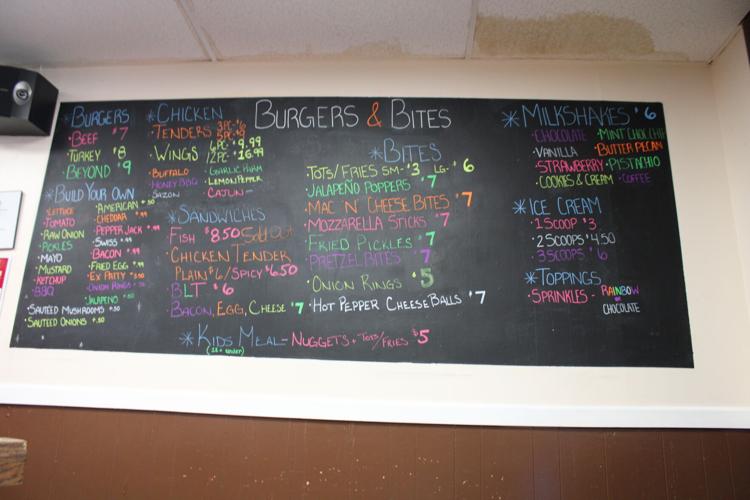 BURGERS & BITES
*BURGERS
·BEEF $7
·TURKEY $8
·BEYOND $9
*BUILD YOUR OWN
·LETTUCE
·TOMATO
·RAW ONION
·PICKLES
·MAYO
·MUSTARD
·KETCHUP
·BBQ
·AMERICAN $.50
·CHEDDAR
·PEPPER JACK $.99
·SWISS $.99
·BACON $.99
·FRIED EGG $.99
·EX PATTY
·ONION RINGS
·JALAPEÑO $.50
·SAUTEED MUSHROOMS $.50
·SAUTEED ONIONS $.50
*CHICKEN
·TENDERS 3PC-$6
5PC-$9
·WINGS 6PC-$9.99
12PC-$16.99
·BUFFALO
·HONEY BBQ
·SAZON
·GARLIC PARM
·LEMON PEPPER
·CAJUN
*SANDWICHES
·FISH $8.50 Sold Out
·CHICKEN TENDER
PLAIN $6/SPICY $6.50
·BLT $6
·BACON, EGG, CHEESE $7
*KIDS MEAL- NUGGETS + TOTS/FRIES $5
(12 & under)
*BITES
·TOTS/FRIES SM-$3 LG-$6
·JALAPEÑO POPPERS $7
·MAC 'N' CHEESE BITES $7
·MOZZARELLA STICKS $7
·FRIED PICKLES $7
·PRETZEL BITES $7
·ONION RINGS $5
·HOT PEPPER CHEESE BALLS $7
*MILKSHAKES $6
·CHOCOLATE
·VANILLA
·STRAWBERRY
·COOKIES & CREAM
·MINT CHOC CHIP
·BUTTER PECAN
·PISTACHIO
·COFFEE
*ICE CREAM
·1 SCOOP $3
·2 SCOOPS $4.50
·3 SCOOPS $6
*TOPPINGS
·SPRINKLES - RAINBOW
OR
CHOCOLATE